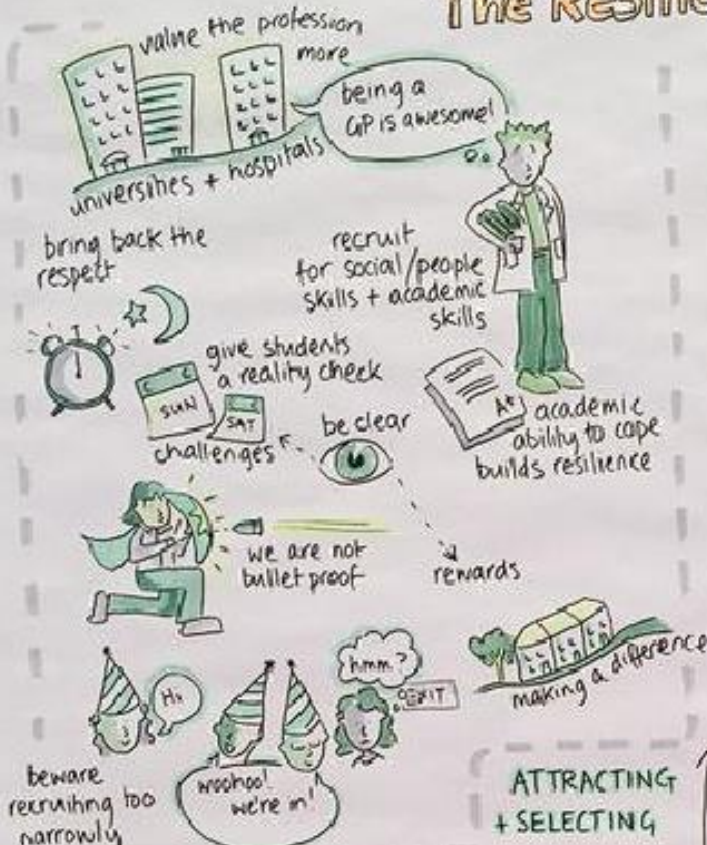 The
value the profession
more
being a
GP is awesome!
universities + hospitals
bring back the
respect
recruit
for social/people
skills + academic
skills
give students
a reality check
SUN
SAT
challenges
be clear
A+
academic
ability to cope
builds resilience
we are not
bullet proof
rewards
making a difference
Hi
hmm?
EXIT
woohoo!
we're in!
beware
recruiting too
narrowly
ATTRACTING
+ SELECTING